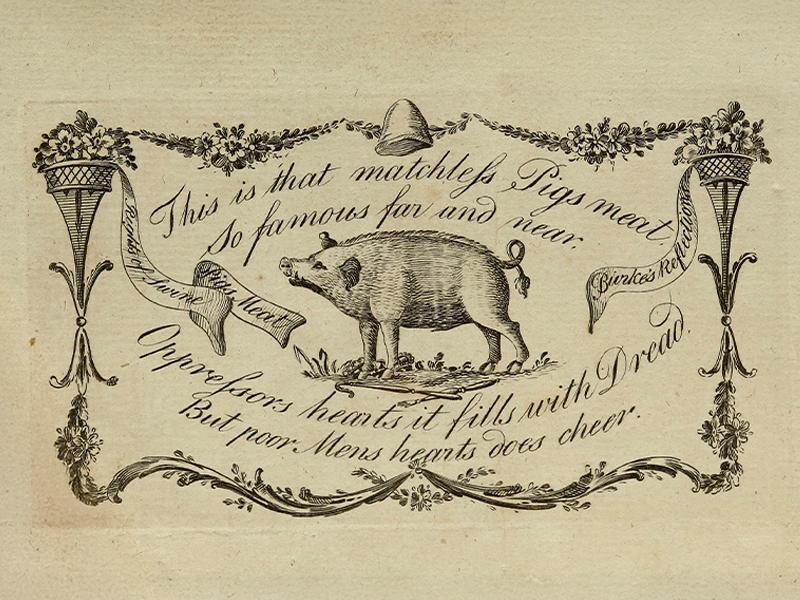 This is that matchleſs Pigs meat,
So famous far and near.
Rights of Swine
Pigs Meat
Burke's Reflections
Oppreſsors hearts it fills with Dread.
But poor Mens hearts does cheer.